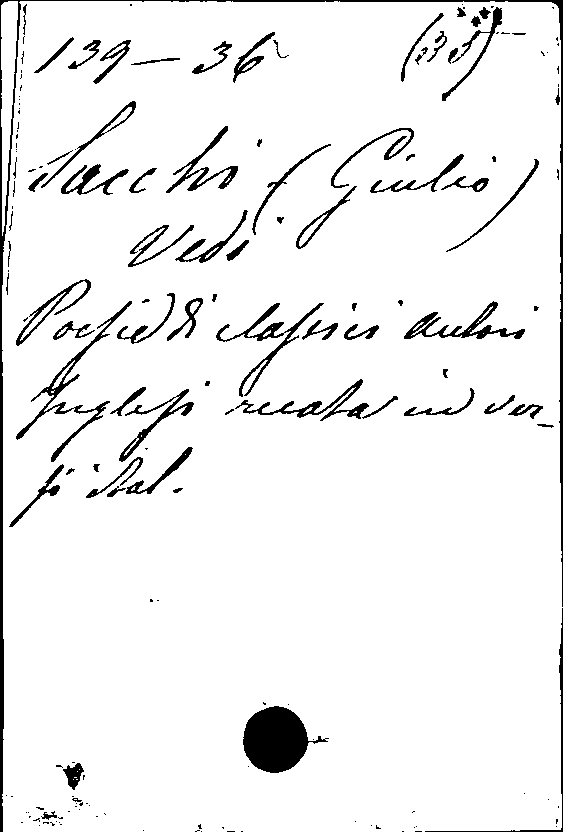 139 — 36 (35)
Sacchi (Giulio)
Vedi
Poesie di classici autori
Inglesi recata in ver-
si ital.